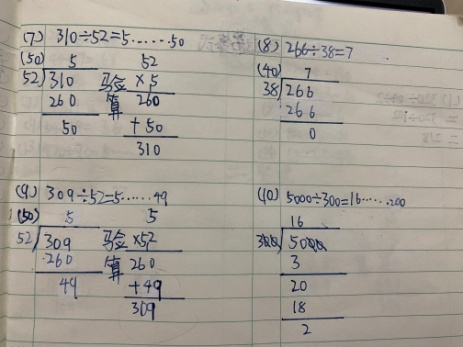 (7) 310÷52=5......50
(50) 5
52 310
260
50
52
验算 ×5
260
+50
310
(8) 266÷38=7
(40) 7
38 266
266
0
(9) 309÷52=5......49
(50) 5
52 309
260
49
5
验算 ×52
260
+49
309
(10) 5000÷300=16......200
16
300 5000
3
20
18
2